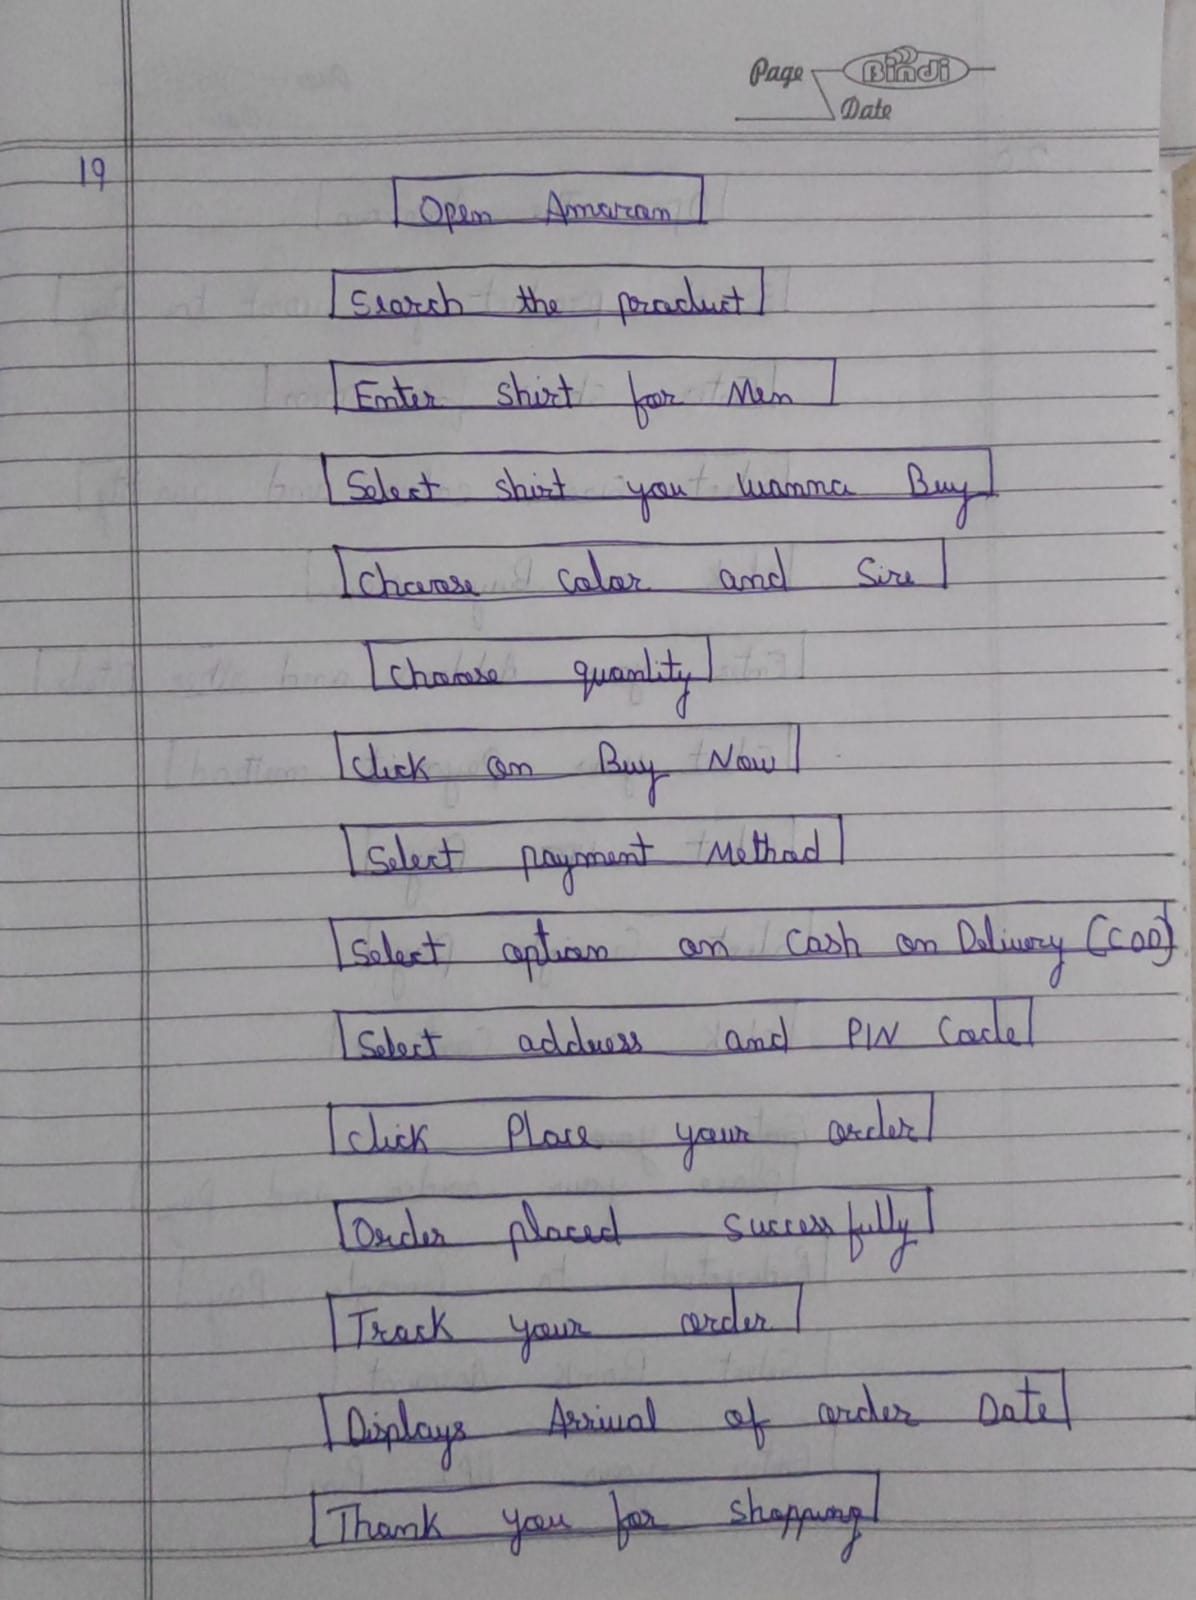 Page Bindi
Date
19
Open Amazon
Search the product
Enter Shirt for Men
Select shirt you wanna Buy
Choose Color and Size
Choose quantity
Click on Buy Now
Select payment Method
Select option on Cash on Delivery (COD)
Select address and PIN Code
Click Place your order
Order placed successfully
Track your order
Displays Arrival of order Date
Thank you for shopping